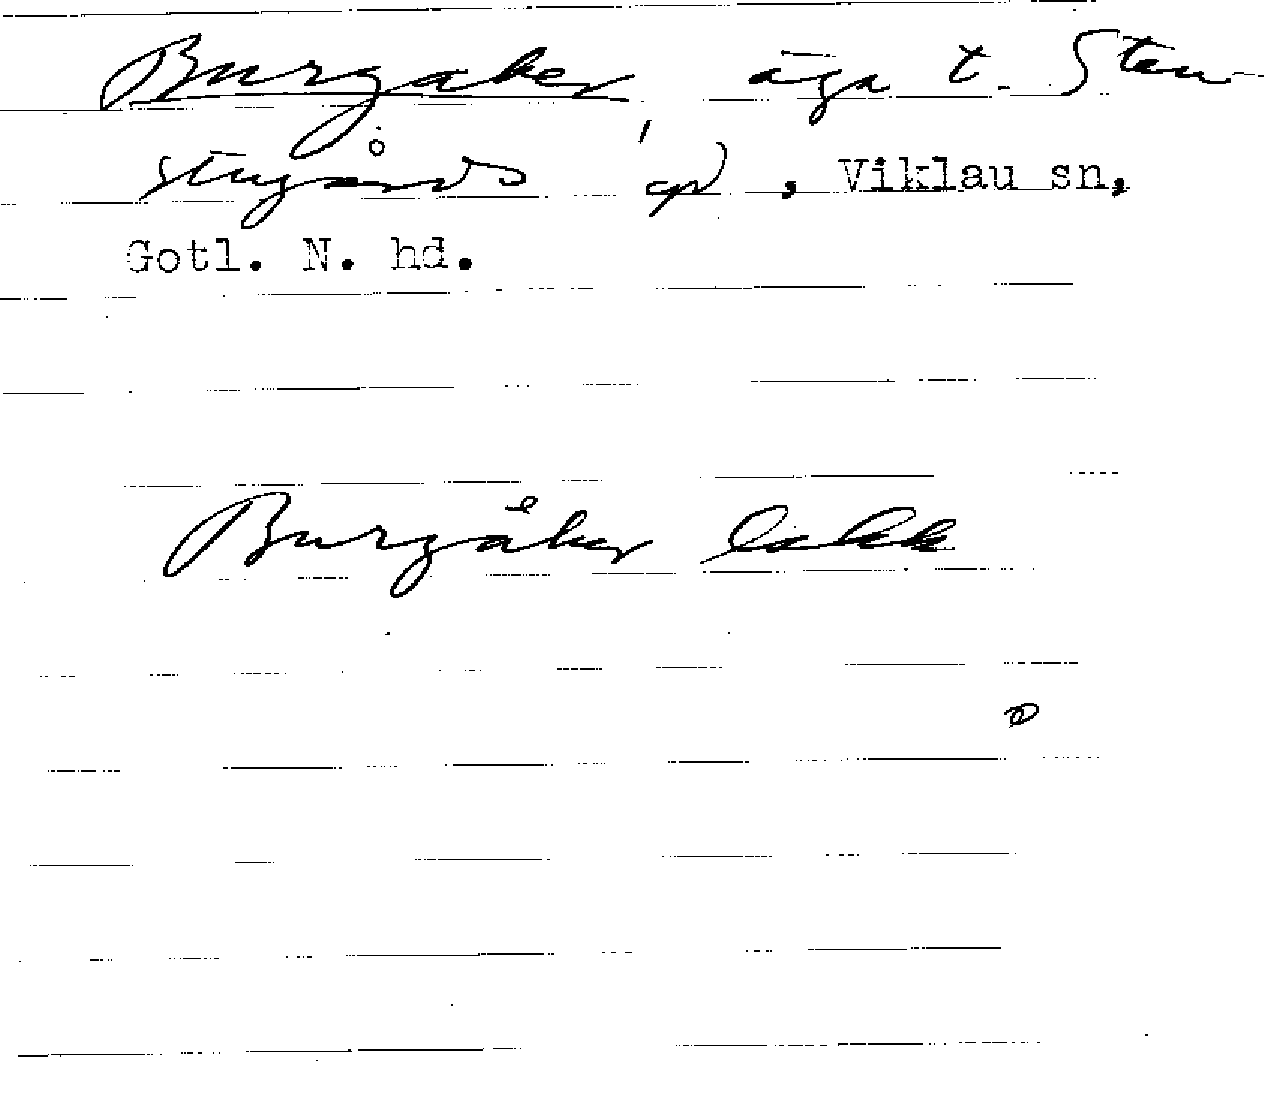 Burgåker, äga t. Sten
stugårds gd, Viklau sn,
Gotl. N. hd.
Burgåker